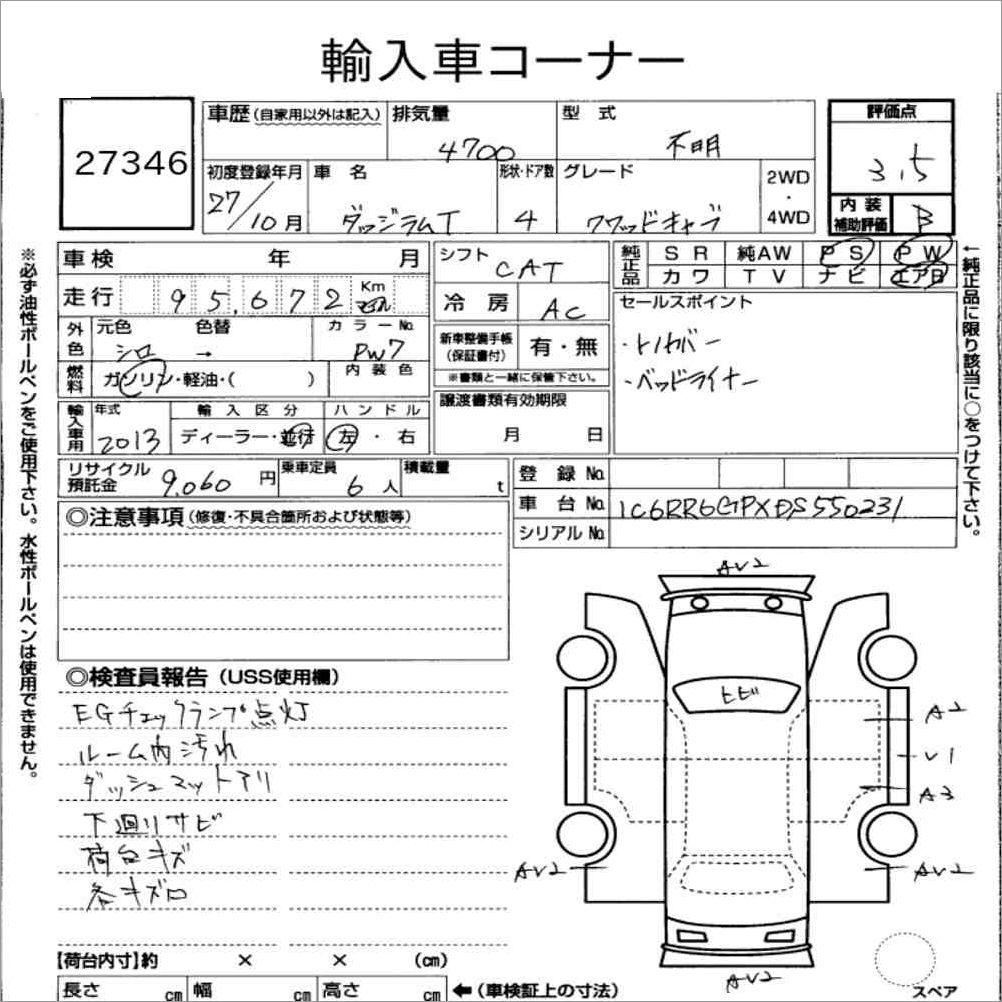 輸入車コーナー
27346
車歴 (自家用以外は記入) 排気量 4700 型式 不明 評価点 3.5
初度登録年月 27/10月 車名 ダッジラムT 形状・ドア数 4 グレード クワッドキャブ 2WD・4WD 内装補助評価 B
車検 年 月 シフト CAT 純正品 SR 純AW PS PW
カワ TV ナビ エアB
走行 95,672 Km マイル 冷房 AC セールスポイント
外色 元色 シロ 色替 → カラーNo. PW7 新車整備手帳(保証書付) 有・無
・トノカバー
燃料 ガソリン・軽油・( ) 内装色 ※書類と一緒に保管下さい。
・ベッドライナー
輸入車用 年式 2013 輸入区分 ディーラー・並行 ハンドル 左・右 譲渡書類有効期限 月 日
リサイクル預託金 9,060円 乗車定員 6人 積載量 t 登録No.
車台No. 1C6RR6GPXDS550231
シリアルNo.
◎注意事項(修復・不具合箇所および状態等)
◎検査員報告(USS使用欄)
EGチェックランプ点灯
ルーム内汚れ
ダッシュマットアリ
下廻りサビ
荷台キズ
各キズ凹
AV2
ヒビ
A2
V1
A3
AV2
AV2
AV2
スペア
【荷台内寸】約 × × (cm)
長さ cm 幅 cm 高さ cm ←(車検証上の寸法)
※必ず油性ボールペンをご使用下さい。水性ボールペンは使用できません。
←純正品に限り該当に○をつけて下さい。